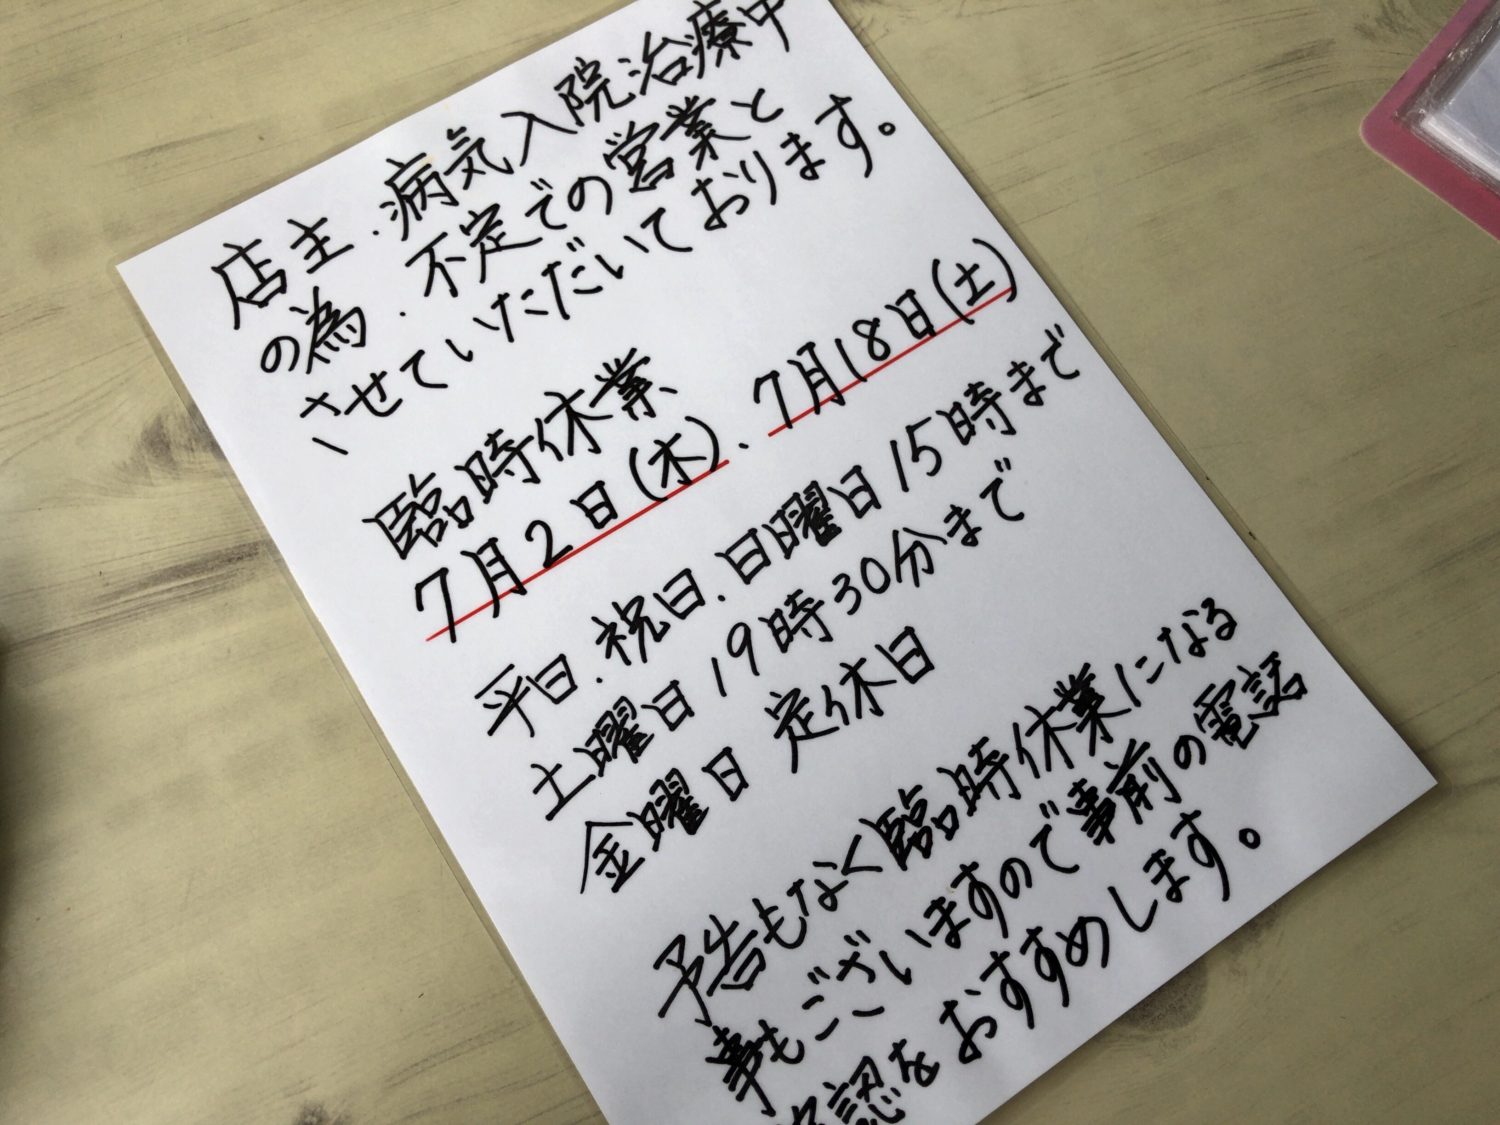 店主、病気入院治療中
の為、不定での営業と
させていただいております。
臨時休業、
7月2日(木)、7月18日(土)
平日、祝日、日曜日15時まで
土曜日19時30分まで
金曜日 定休日
予告もなく臨時休業になる
事もございますので事前の電話
確認をおすすめします。